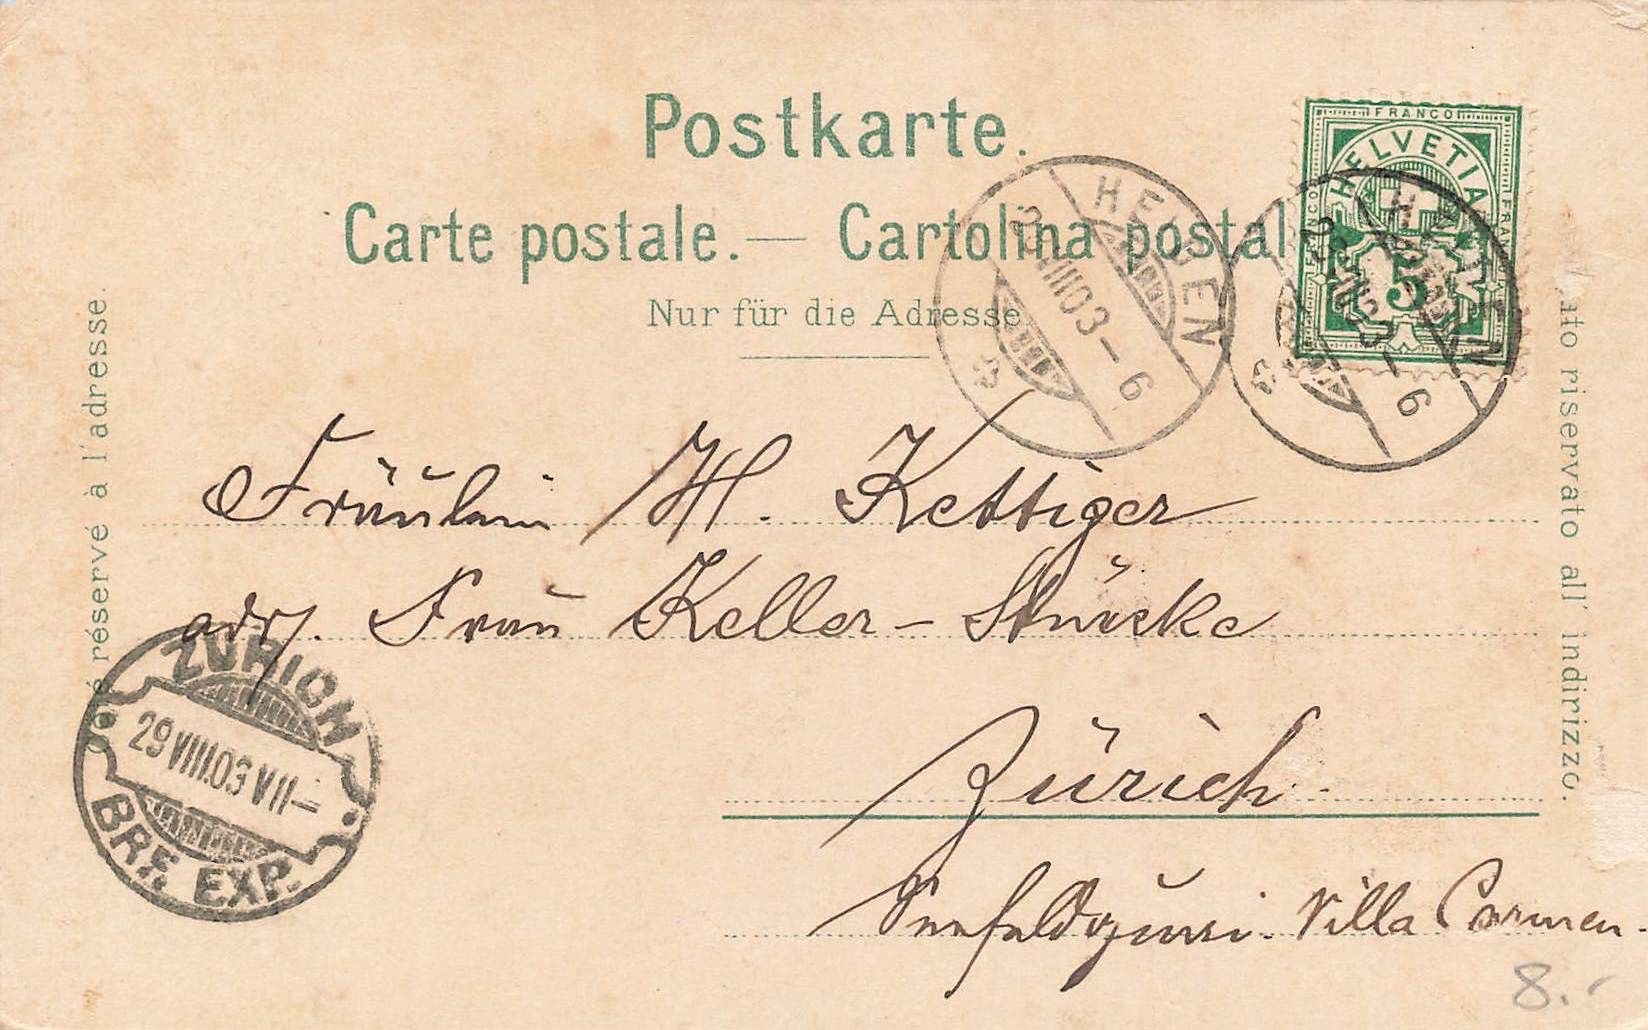 Postkarte.
Carte postale. — Cartolina postal
Nur für die Adresse
FRANCO
HELVETIA
FRANCO
5
HEIDEN
VIII 03 – 6
HEIDEN
VIII 03 – 6
é réservé à l'adresse.
ato riservato all' indirizzo.
Fräulein M. Kettiger
adr. Frau Keller – Stücke
ZÜRICH
29 VIII.03 VII –
BRF. EXP.
Zürich
Villa Carmen.
8.-